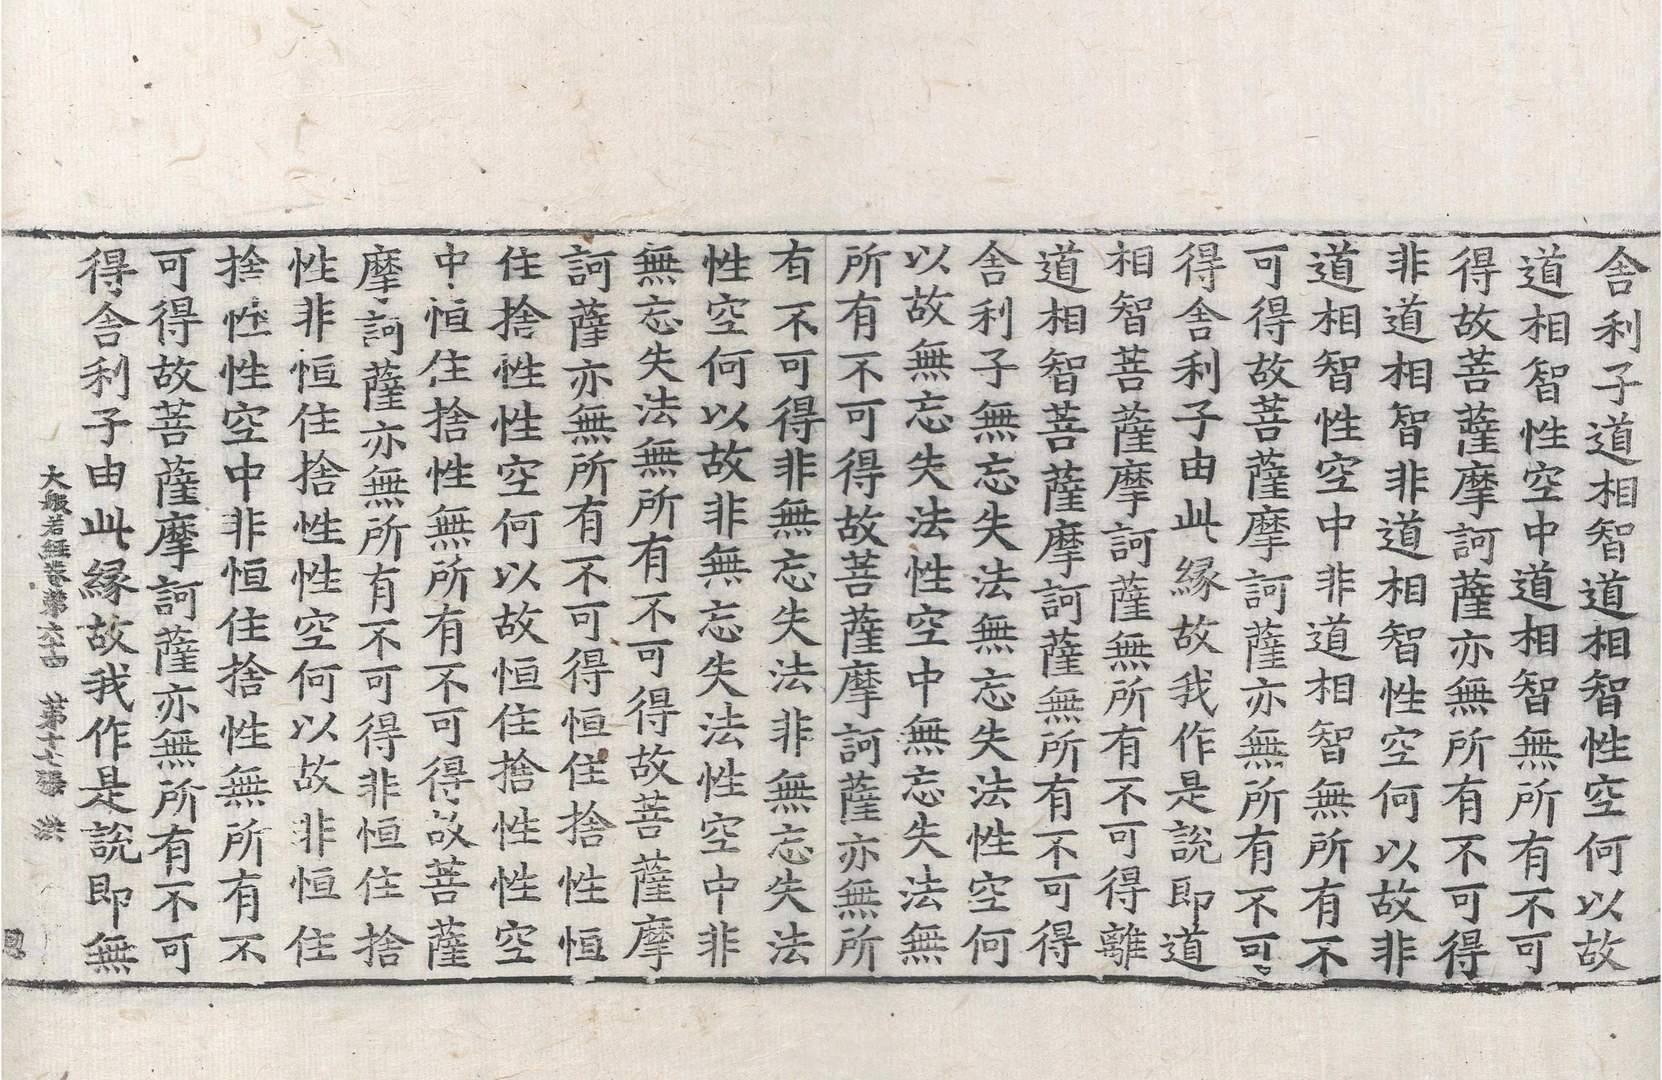 舍利子道相智道相智性空何以故
道相智性空中道相智無所有不可
得故菩薩摩訶薩亦無所有不可得
非道相智非道相智性空何以故非
道相智性空中非道相智無所有不
可得故菩薩摩訶薩亦無所有不可
得舍利子由此縁故我作是說即道
相智菩薩摩訶薩無所有不可得離
道相智菩薩摩訶薩無所有不可得
舍利子無忘失法無忘失法性空何
以故無忘失法性空中無忘失法無
所有不可得故菩薩摩訶薩亦無所
有不可得非無忘失法非無忘失法
性空何以故非無忘失法性空中非
無忘失法無所有不可得故菩薩摩
訶薩亦無所有不可得恒住捨性恒
住捨性性空何以故恒住捨性性空
中恒住捨性無所有不可得故菩薩
摩訶薩亦無所有不可得非恒住捨
性非恒住捨性性空何以故非恒住
捨性性空中非恒住捨性無所有不
可得故菩薩摩訶薩亦無所有不可
得舍利子由此縁故我作是說即無
大般若經卷第六十四 第十七張 洪